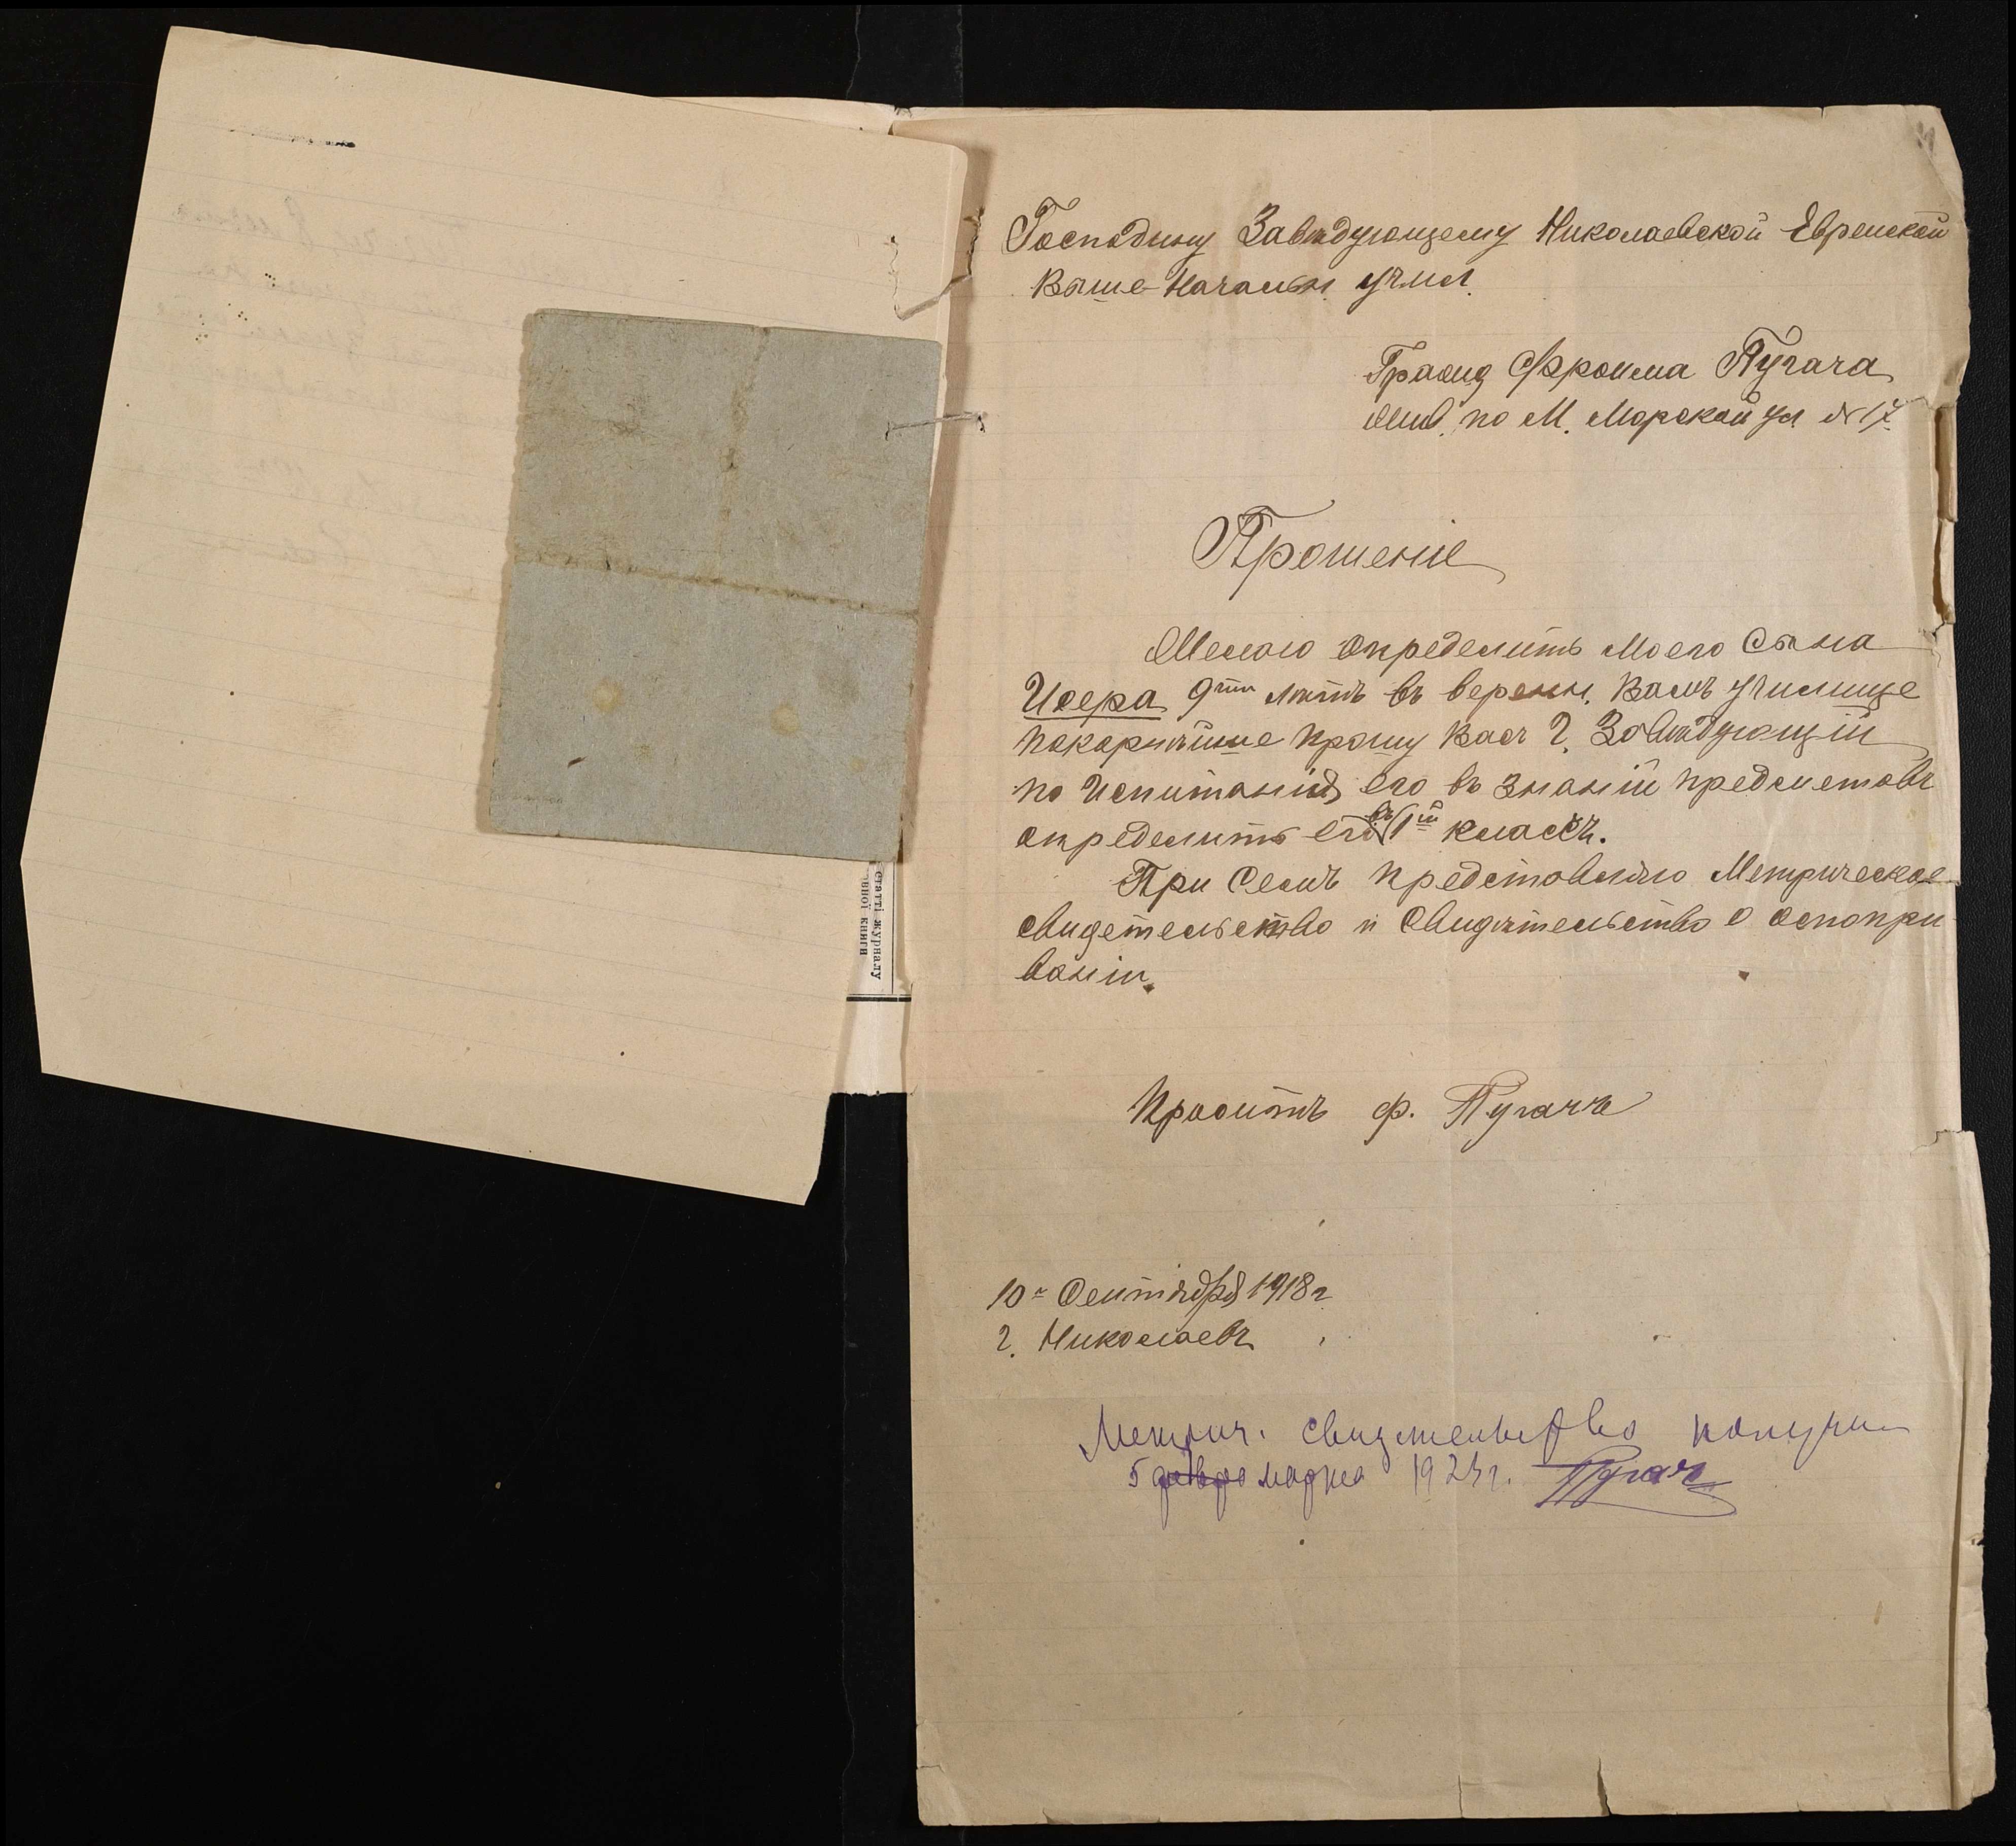 Господину Завѣдующему Николаевской Еврейской
Выше-Начальн. учил.
Гражд Фроима Пугача
жив. по М. Морской ул № 17.
Прошеніе
Желаю определить моего Сына
Исера 9ти лѣтъ въ верен. Вамъ училище
покорнѣйше прошу Васъ Г. Завѣдующій
по Испитанія его въ знаній предметовъ
определить его въ 1й классъ.
При Семъ представляю Метрическое
свидетельство и Свидѣтельство о оспопри
ваніи.
Проситъ Ф. Пугачъ
10го Сентября 1918 г
г. Николаевъ
Метрич. свидетельство получил
5 марта 1923 г. Пугач
статті журналу
вної книги